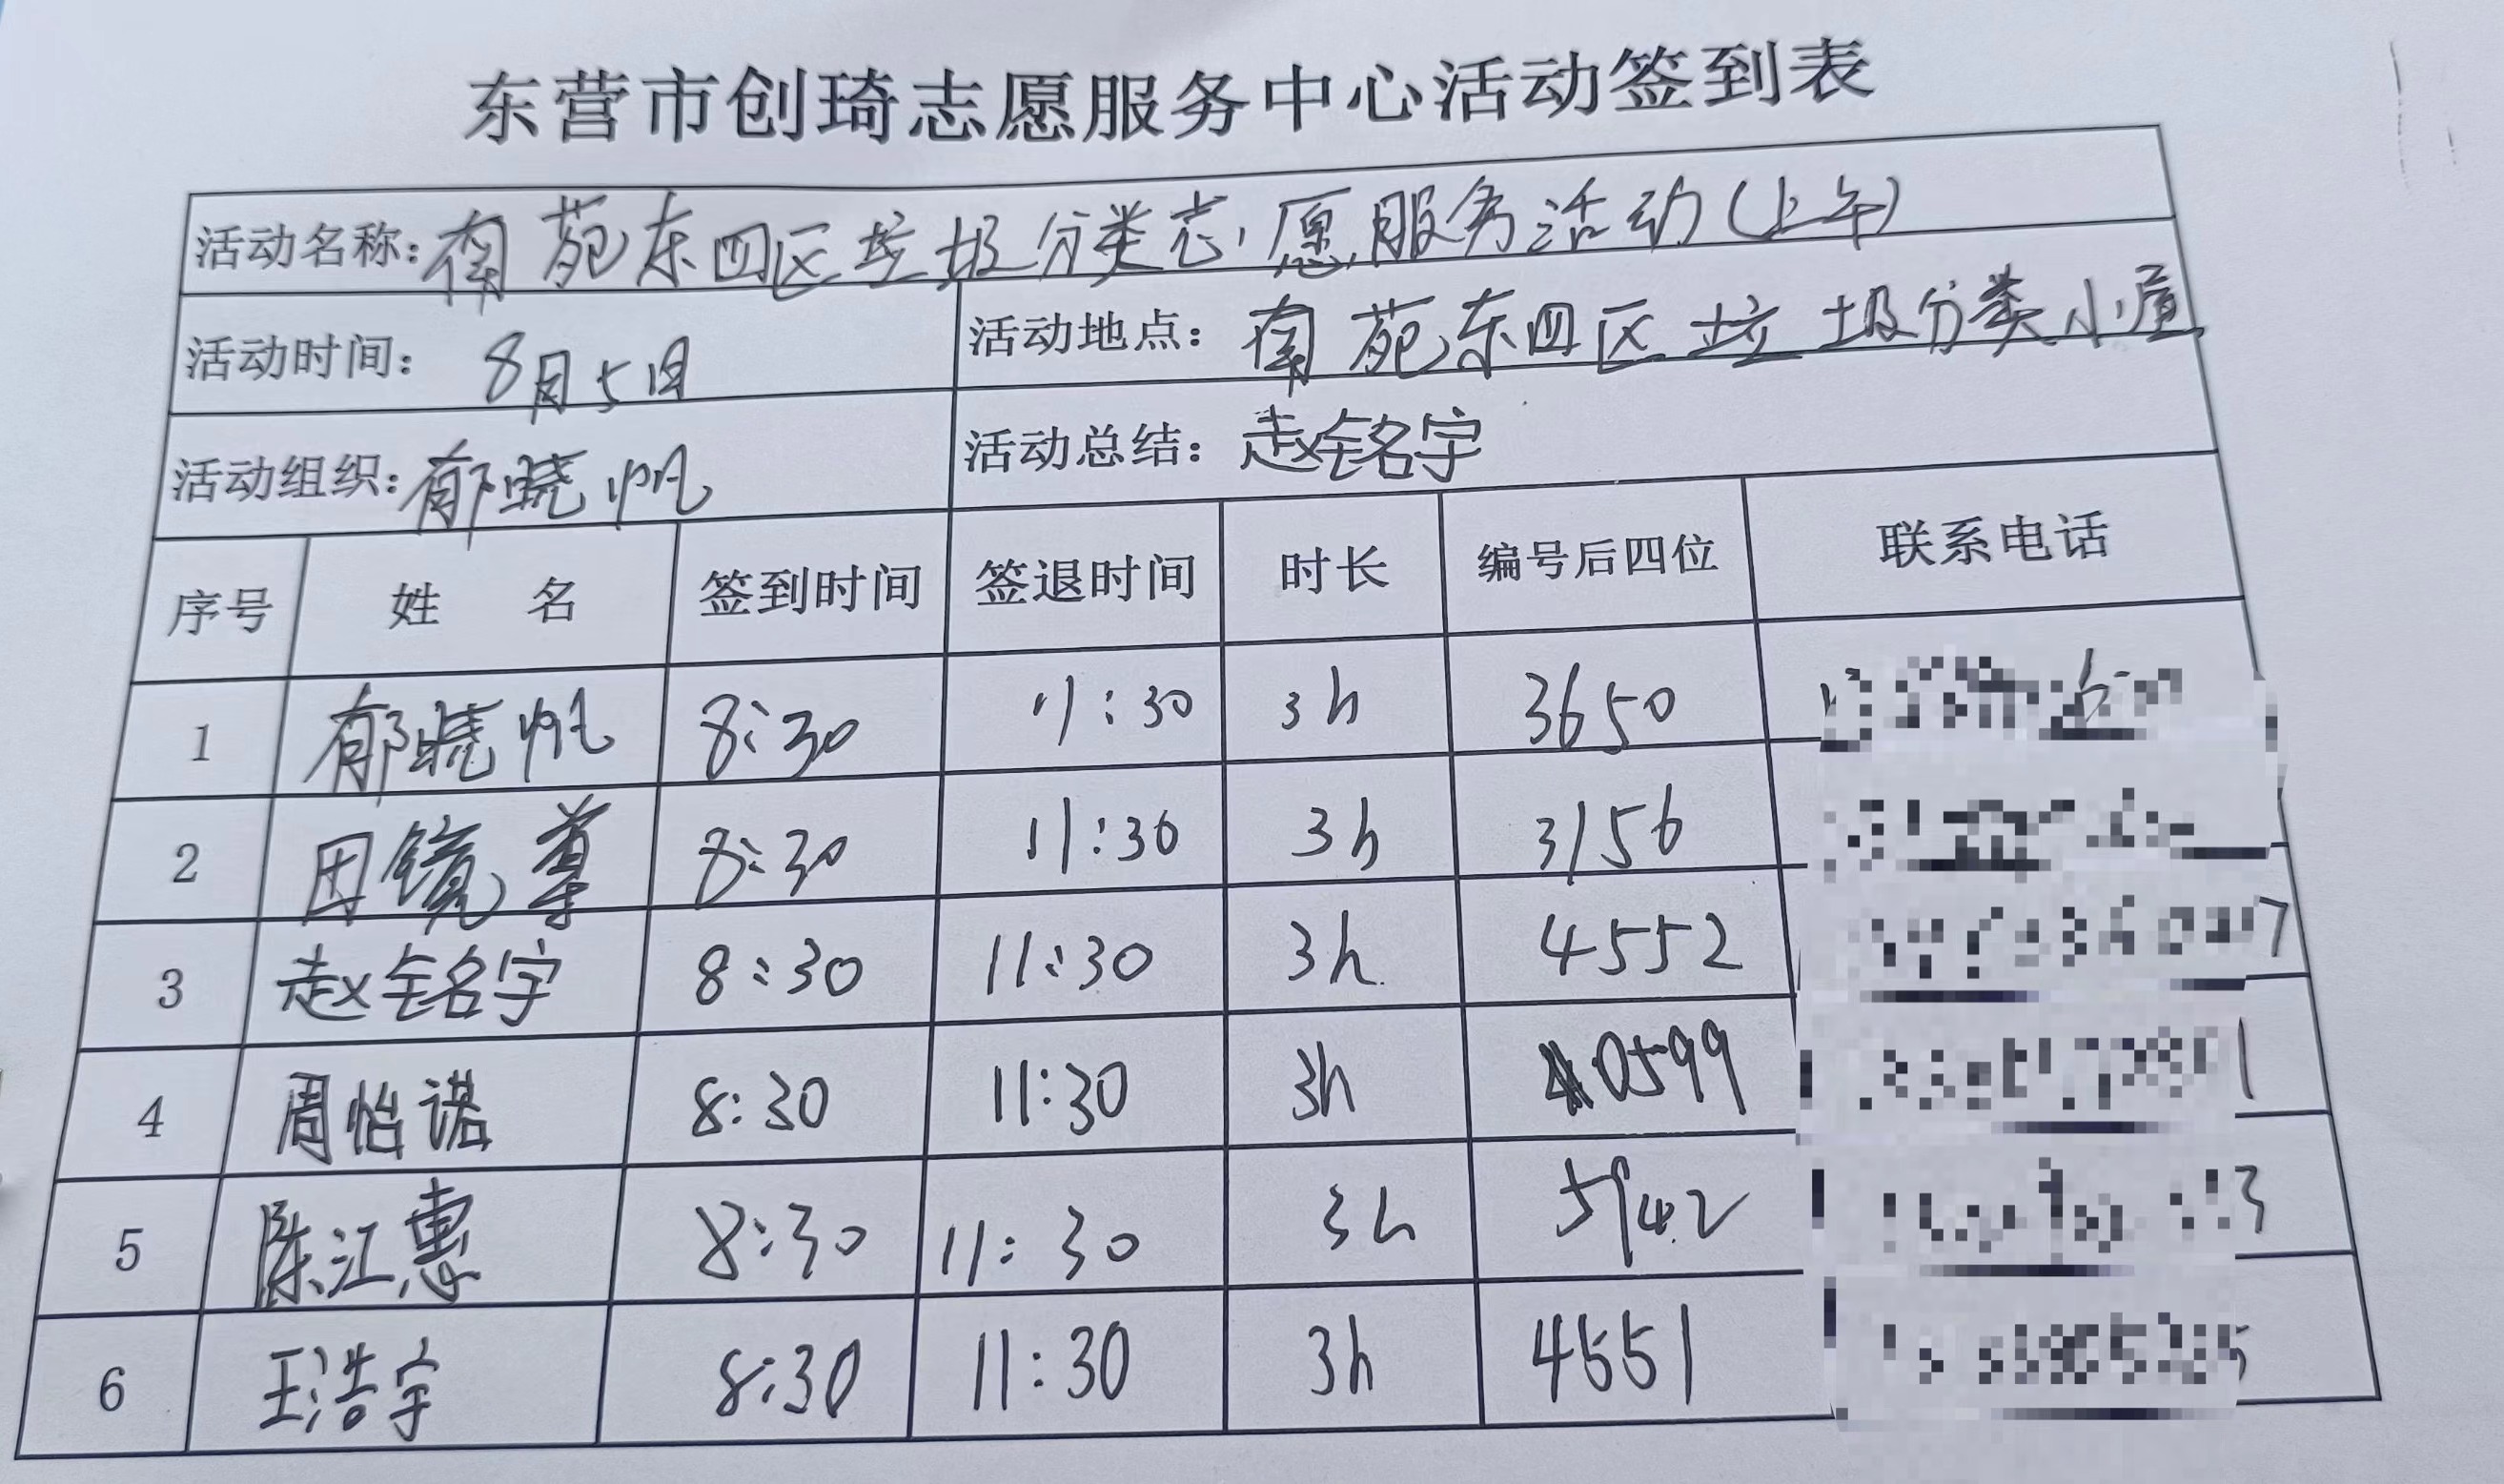 东营市创琦志愿服务中心活动签到表
活动名称：南苑东四区垃圾分类志愿服务活动(上午)
活动时间： 8月5日 活动地点：南苑东四区垃圾分类小屋
活动组织：郁晓帆 活动总结：赵铭宇
序号 姓 名 签到时间 签退时间 时长 编号后四位 联系电话
1 郁晓帆 8:30 11:30 3h 3650
2 田镜尊 8:30 11:30 3h 3156
3 赵铭宇 8:30 11:30 3h 4552
4 周怡诺 8:30 11:30 3h 0599
5 陈江惠 8:30 11:30 3h 5942
6 王浩宇 8:30 11:30 3h 4551